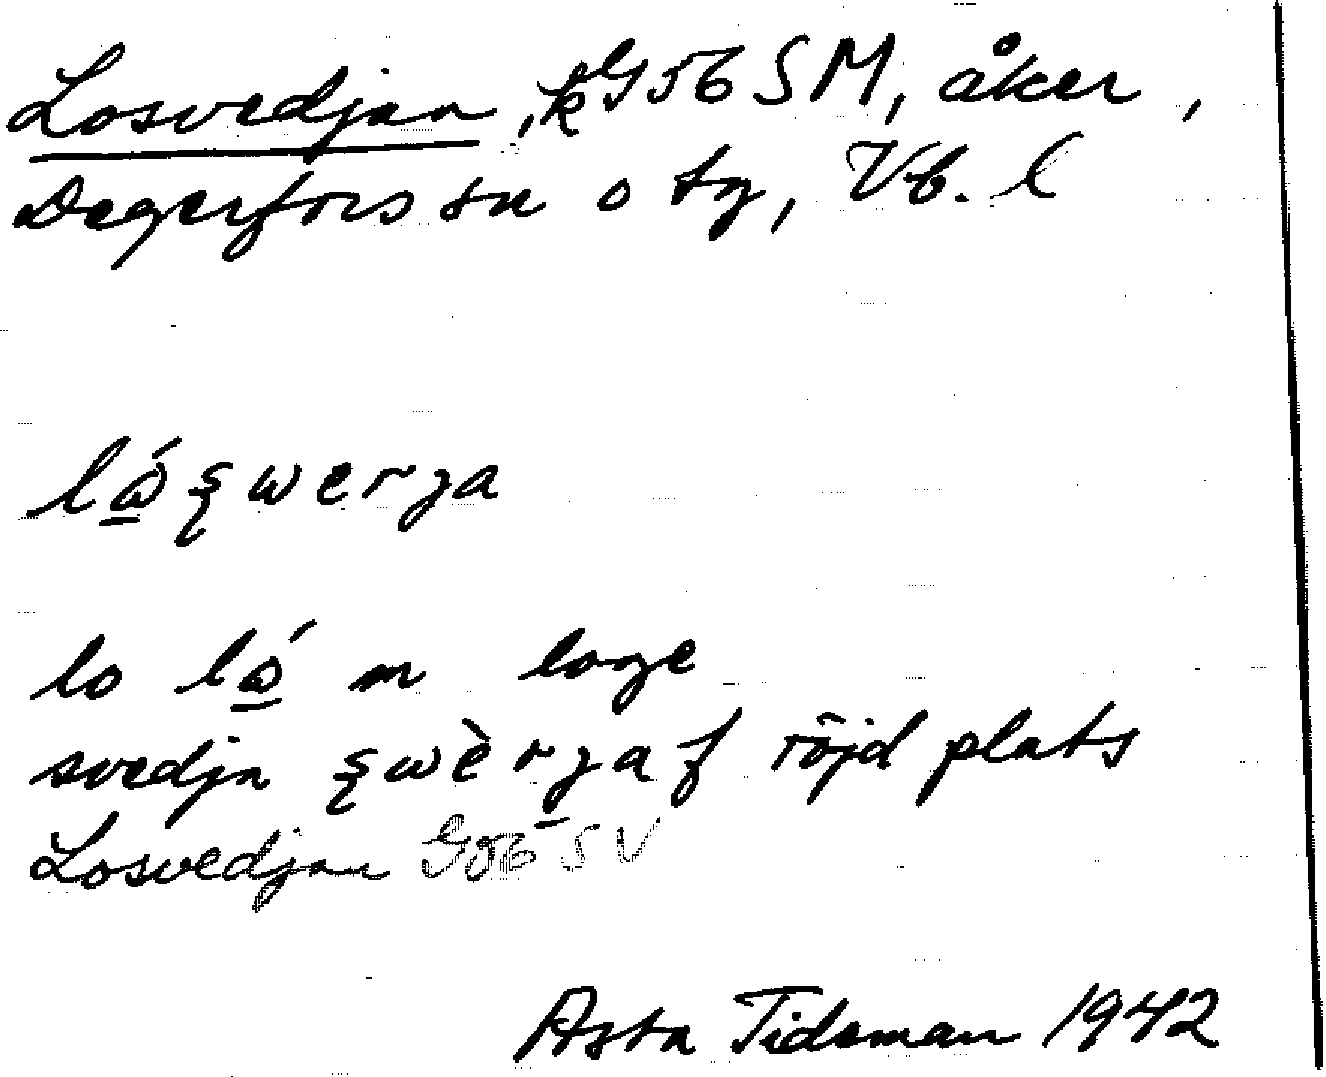 Losvedjan, k G5b SM, åker,
Degerfors sn o tg, Vb. l
lǫ́şwerja
lo lǫ́ m loge
svedja şwèrja f röjd plats
Losvedjan G5b SV
Asta Tidsman 1942